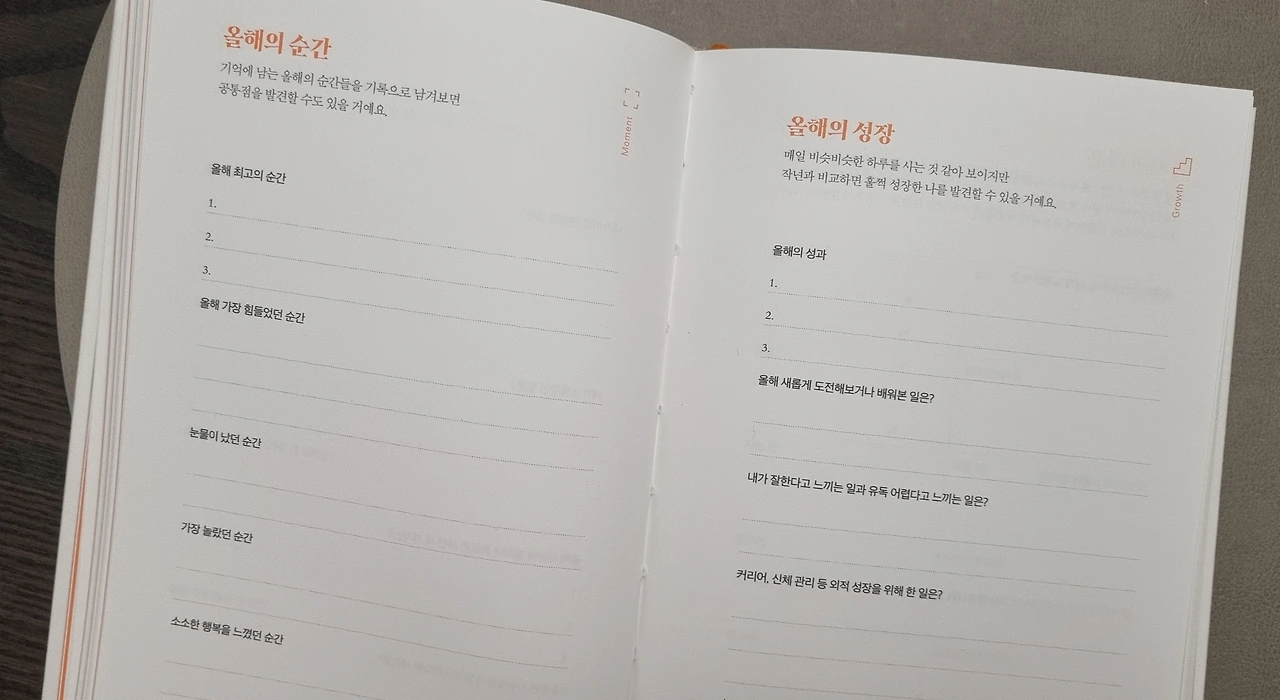 올해의 순간
기억에 남는 올해의 순간들을 기록으로 남겨보면
공통점을 발견할 수도 있을 거예요.
Moment
올해 최고의 순간
1.
2.
3.
올해 가장 힘들었던 순간
눈물이 났던 순간
가장 놀랐던 순간
소소한 행복을 느꼈던 순간
올해의 성장
매일 비슷비슷한 하루를 사는 것 같아 보이지만
작년과 비교하면 훌쩍 성장한 나를 발견할 수 있을 거예요.
Growth
올해의 성과
1.
2.
3.
올해 새롭게 도전해보거나 배워본 일은?
내가 잘한다고 느끼는 일과 유독 어렵다고 느끼는 일은?
커리어, 신체 관리 등 외적 성장을 위해 한 일은?